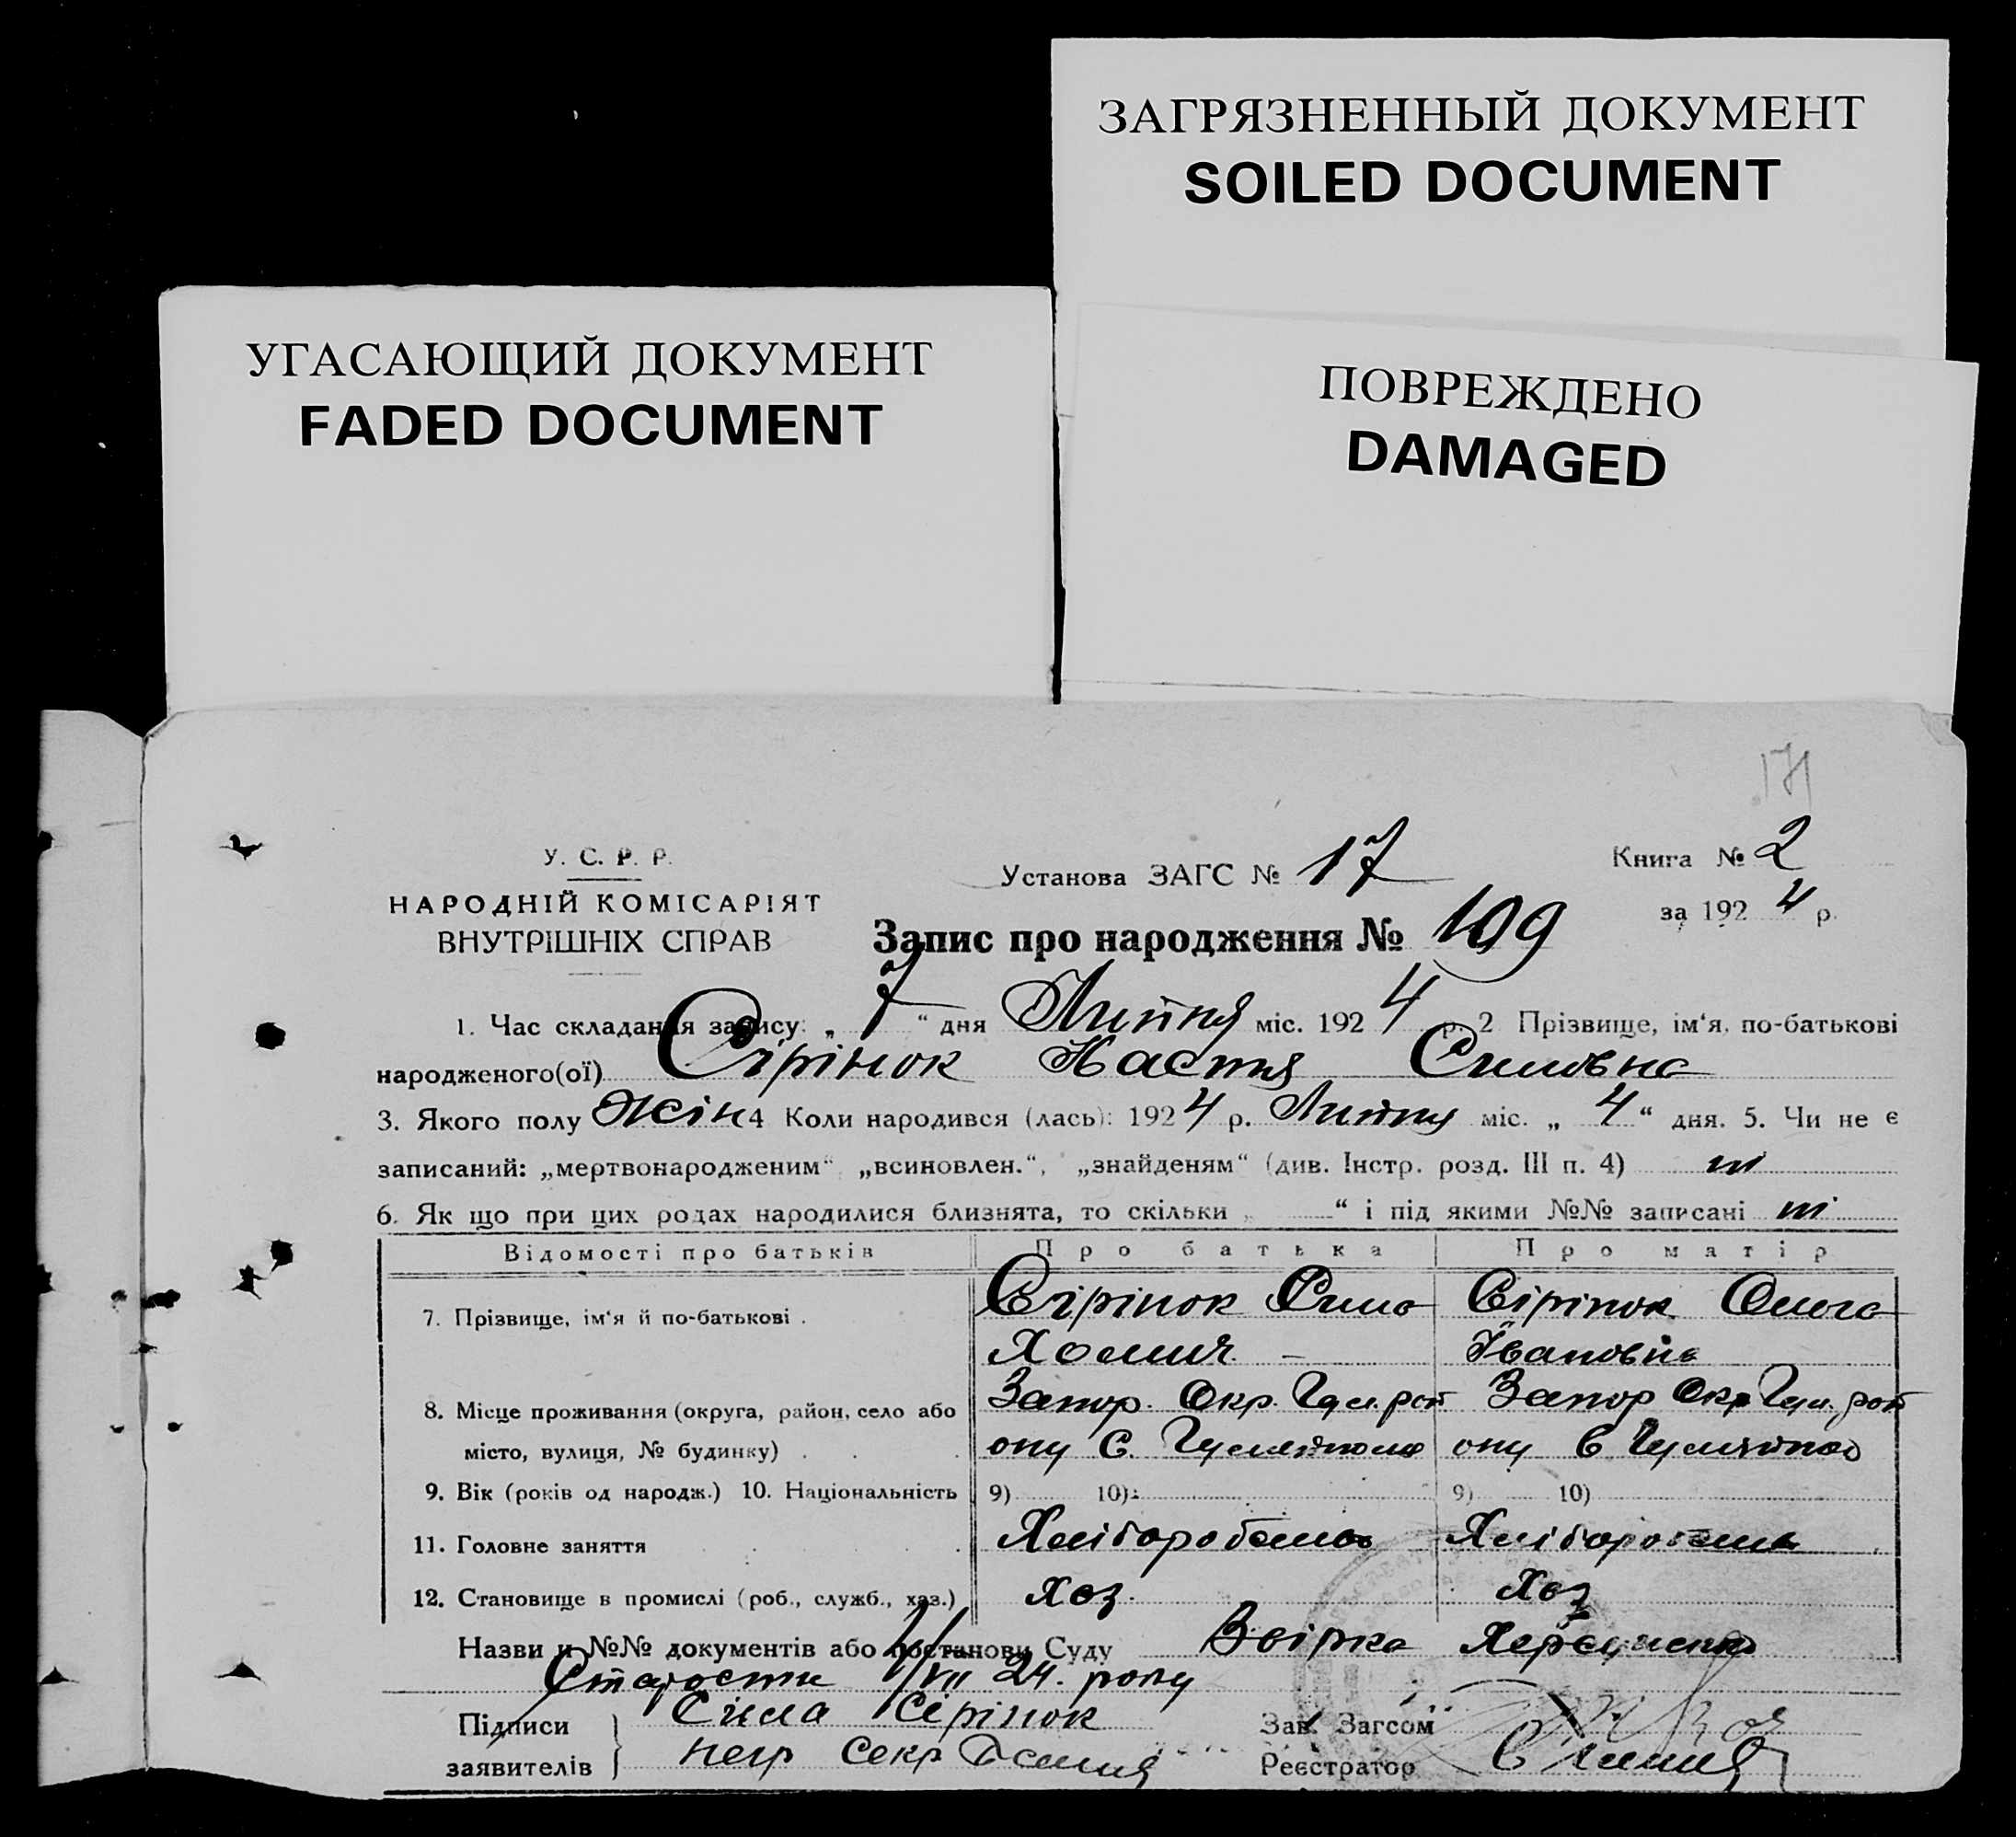 ЗАГРЯЗНЕННЫЙ ДОКУМЕНТ
SOILED DOCUMENT
УГАСАЮЩИЙ ДОКУМЕНТ
FADED DOCUMENT
ПОВРЕЖДЕНО
DAMAGED
171
У. С. Р. Р.
НАРОДНІЙ КОМІСАРІЯТ
ВНУТРІШНІХ СПРАВ
Установа ЗАГС № 17
Книга № 2
за 1924 р.
Запис про народження № 109
1. Час складання запису: „7“ дня Липня міс. 1924 р. 2 Прізвище, ім‘я, по-батькові
народженого(ої) Сірінок Настя Силовна
3. Якого полу Жін 4 Коли народився (лась): 1924 р. Липня міс. „4“ дня. 5. Чи не є
записаний: „мертвонародженим“ „всиновлен.“, „знайденям“ (див. Інстр. розд. III п. 4) ні
6. Як що при цих родах народилися близнята, то скільки „ “ і під якими №№ записані ні
Відомості про батьків Про батька Про матір
7. Прізвище, ім‘я й по-батькові . Сірінок Сила Сірінок Ольга
Хомич Івановна
8. Місце проживання (округа, район, село або Запор. Окр. Гул. рай Запор Окр Гул. рай
місто, вулиця, № будинку) ону С. Гуляйполе ону С Гуляйпол
9. Вік (років од народж.) 10. Національність 9) 10) 9) 10)
11. Головне заняття Хлібороб Хлібороб
12. Становище в промислі (роб., служб., хаз.) Хоз. Хоз
Назви и №№ документів або постанови Суду
Старости 7/VII 24. року
Підписи
заявителів
Сила Сірінок
негр Секр
Зав. Загсом
Реєстратор